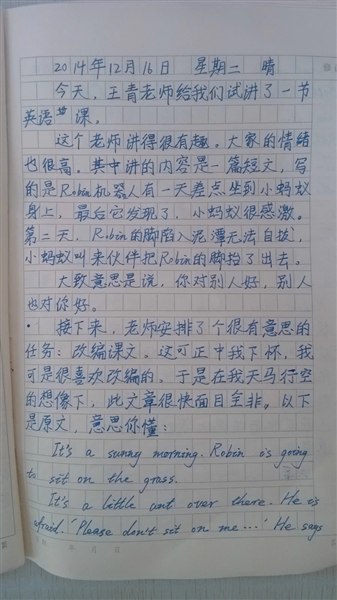 2014年12月16日 星期二 晴
今天，王青老师给我们试讲了一节
英语课。
这个老师讲得很有趣。大家的情绪
也很高。其中讲的内容是一篇短文，写
的是Robin机器人有一天差点坐到小蚂蚁
身上，最后它发现了，小蚂蚁很感激。
第二天，Robin的脚陷入泥潭无法自拔，
小蚂蚁叫来伙伴把Robin的脚抬了出去。
大致意思是说，你对别人好，别人
也对你好。
接下来，老师安排了个很有意思的
任务：改编课文。这可正中我下怀，我
可是很喜欢改编的。于是在我天马行空
的想像下，此文章很快面目全非。以下
是原文，意思你懂：
It's a sunny morning. Robin is going
to sit on the grass.
It's a little ant over there. He is
afraid. 'Please don't sit on me...' He says
年 月 日